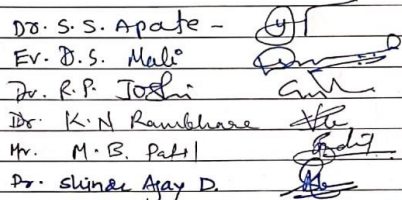 Dr. S. S. Apate -
Er. D. S. Mali
Dr. R. P. Joshi
Dr. K. N Rambhare
Mr. M. B. Patil
Dr. Shinde Ajay D.